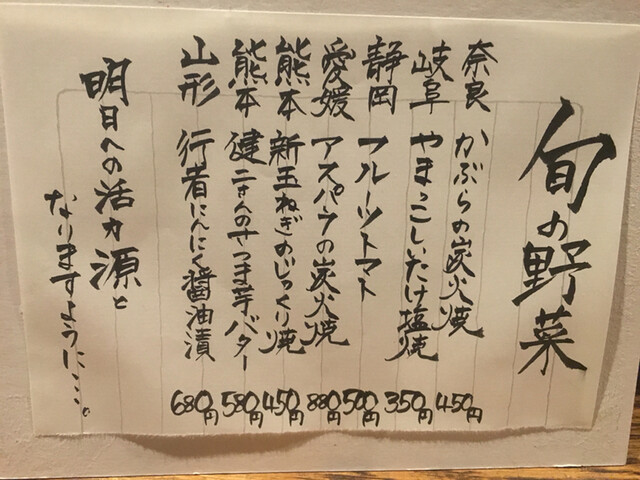 旬の野菜
奈良 かぶらの炭火焼 450円
岐阜 やまっこしいたけ塩焼 350円
静岡 フルーツトマト 500円
愛媛 アスパラの炭火焼 880円
熊本 新玉ねぎのじっくり焼 450円
熊本 健二さんのさつま芋バター 580円
山形 行者にんにく醤油漬 680円
明日への活力源と
なりますように…。